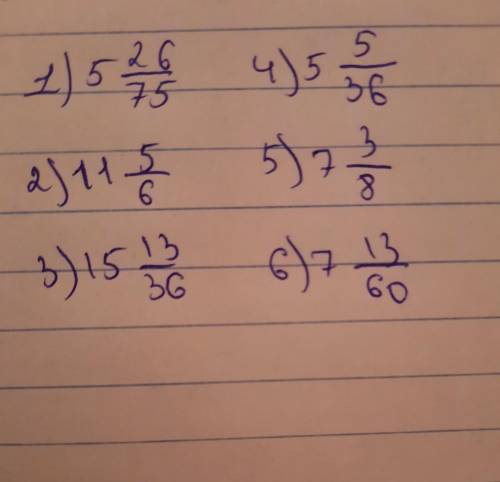 1) 5 26/75 4) 5 5/36
2) 11 5/6 5) 7 3/8
3) 15 13/36 6) 7 13/60